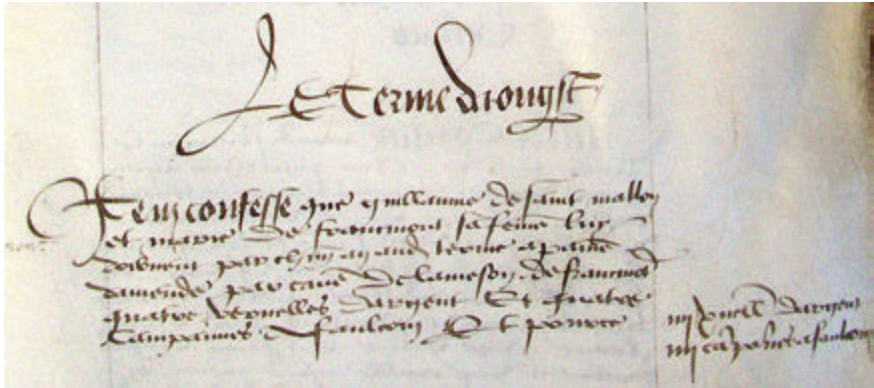 Le terme daougst
Item confesse que guillaume de saint mallon
et marie de francmont sa feme luy
doibvent par chun an aud terme a paine
damende par cause de la meson de francmot
quatre vervelles dargent Et quatre
Campannes a faulcon Et pource
iiij vervell dargent
iiij capanes a faulcon